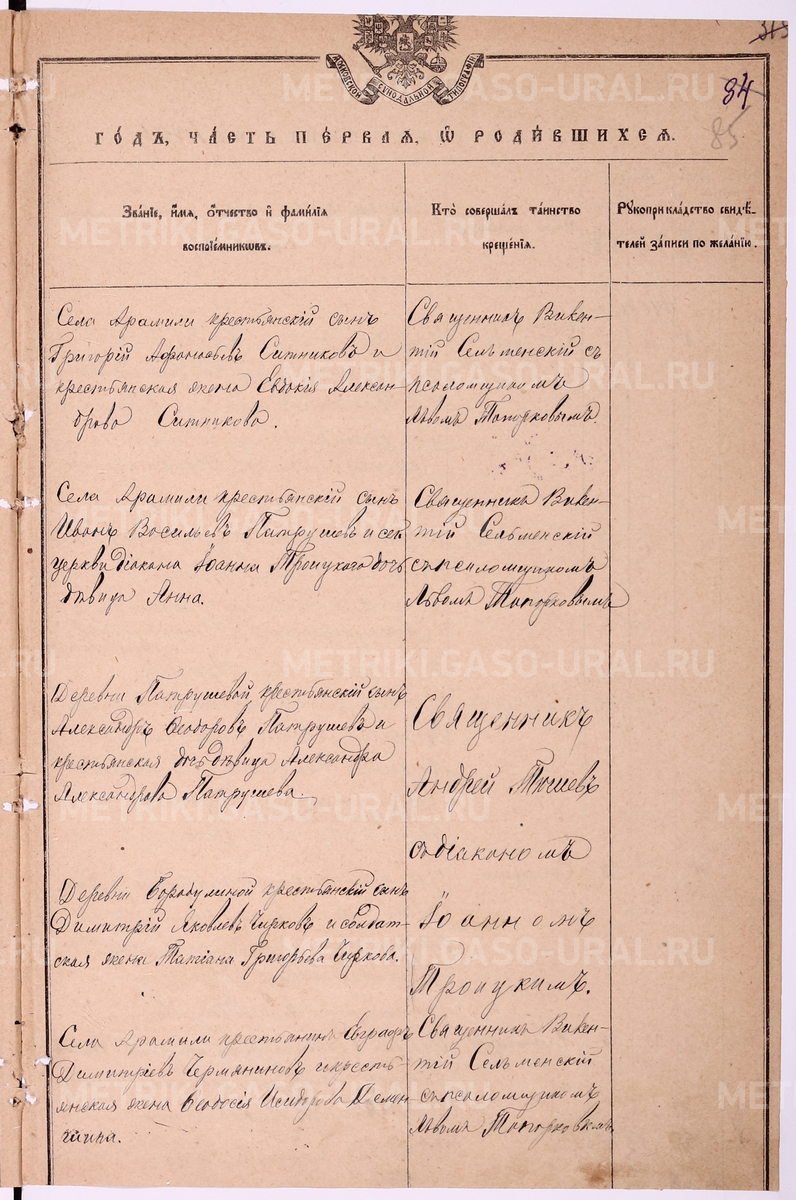 МОСКОВСКОЙ СѴНОДАЛЬНОЙ ТИПОГРАФІИ
84
85
ГО́ДЪ, ЧА́СТЬ ПЕ́РВАЯ, Ѽ РОДИ́ВШИХСЯ.
Зва́нїе, и҆́мя, о҆́тчество и҆ фами́лїя
воспрїе́мникѡвъ.
Кто̀ соверша́лъ та́инство
креще́нїя.
Рꙋкоприкла́дство свидѣ́-
телей за́писи по жела́нїю.
Села Арамили крестьянскій сынъ
Григорій Афонасьевъ Ситниковъ и
крестьянская жена Евдокія Алексан-
дрова Ситникова.
Священникъ Викен-
тій Сельменскій съ
псаломщикомъ
Львомъ Топорковымъ.
Села Арамили крестьянскій сынъ
Иванъ Васильевъ Патрушевъ и сей
церкви діакона Іоанна Троицкого дочь
дѣвица Анна.
Священникъ Викен-
тій Сельменскій
съ псаломщикомъ
Львомъ Топорковымъ
Деревни Патрушевой крестьянскій сынъ
Александръ Ѳеодоровъ Патрушевъ и
крестьянская дочь дѣвица Александра
Александрова Патрушева.
Деревни Бородулиной крестьянскій сынъ
Димитрій Яковлевъ Чирковъ и солдат-
ская жена Татіана Григорьева Чиркова.
Священникъ
Андрей
съ діакономъ
Іоанномъ
Троицкимъ.
Села Арамили крестьянинъ Евграфъ
Димитріевъ Чермяниновъ и кресть-
янская жена Ѳеодосія Исидорова Демен-
шина.
Священникъ Викен-
тій Сельменскій
съ псаломщикомъ
Львомъ Топорковымъ
METRIKI.GASO-URAL.RU